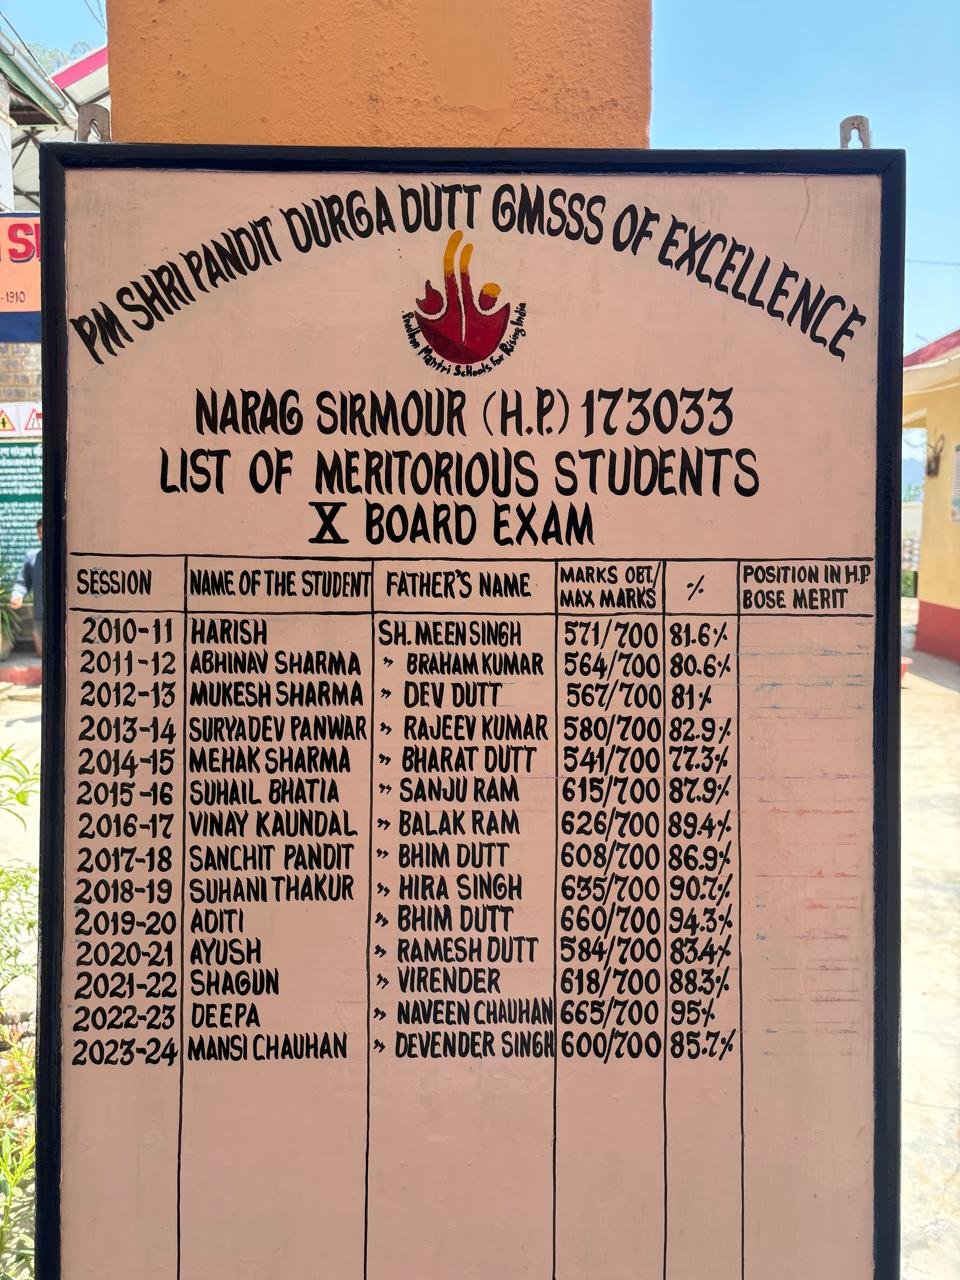 PM SHRI PANDIT DURGA DUTT GMSSS OF EXCELLENCE
Pradhan Mantri Schools for Rising India
NARAG SIRMOUR (H.P.) 173033
LIST OF MERITORIOUS STUDENTS
X BOARD EXAM
SESSION NAME OF THE STUDENT FATHER'S NAME MARKS OBT./ MAX MARKS % POSITION IN H.P. BOSE MERIT
2010-11 HARISH SH. MEEN SINGH 571/700 81.6%
2011-12 ABHINAV SHARMA " BRAHAM KUMAR 564/700 80.6%
2012-13 MUKESH SHARMA " DEV DUTT 567/700 81%
2013-14 SURYADEV PANWAR " RAJEEV KUMAR 580/700 82.9%
2014-15 MEHAK SHARMA " BHARAT DUTT 541/700 77.3%
2015-16 SUHAIL BHATIA " SANJU RAM 615/700 87.9%
2016-17 VINAY KAUNDAL " BALAK RAM 626/700 89.4%
2017-18 SANCHIT PANDIT " BHIM DUTT 608/700 86.9%
2018-19 SUHANI THAKUR " HIRA SINGH 635/700 90.7%
2019-20 ADITI " BHIM DUTT 660/700 94.3%
2020-21 AYUSH " RAMESH DUTT 584/700 83.4%
2021-22 SHAGUN " VIRENDER 618/700 88.3%
2022-23 DEEPA " NAVEEN CHAUHAN 665/700 95%
2023-24 MANSI CHAUHAN " DEVENDER SINGH 600/700 85.7%
-1910